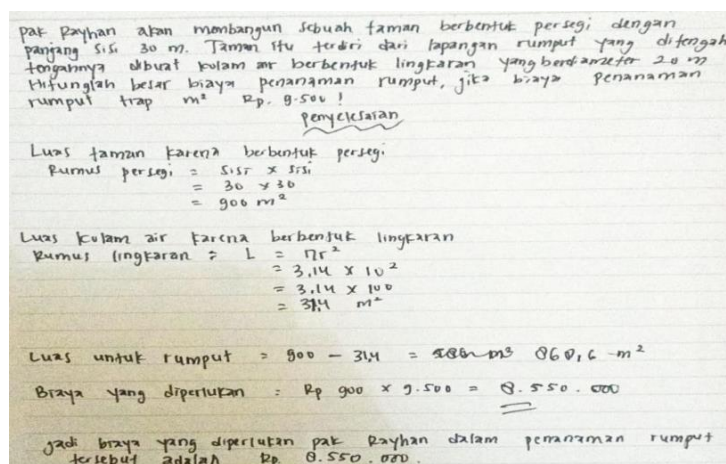 Pak Rayhan akan membangun sebuah taman berbentuk persegi dengan
panjang sisi 30 m. Taman itu terdiri dari lapangan rumput yang ditengah
tengahnya dibuat kolam air berbentuk lingkaran yang berdiameter 20 m
Hitunglah besar biaya penanaman rumput, jika biaya penanaman
rumput tiap m² Rp. 9.500 !
Penyelesaian
Luas taman karena berbentuk persegi.
Rumus persegi = sisi x sisi
= 30 x 30
= 900 m²
Luas kolam air karena berbentuk lingkaran
Rumus lingkaran = L = πr²
= 3,14 x 10²
= 3.14 x 100
= 31,4 m²
Luas untuk rumput = 900 - 31,4 = 868,6 m²
Biaya yang diperlukan = Rp 900 x 9.500 = 8.550.000
Jadi biaya yang diperlukan pak Rayhan dalam penanaman rumput
tersebut adalah Rp. 8.550.000.